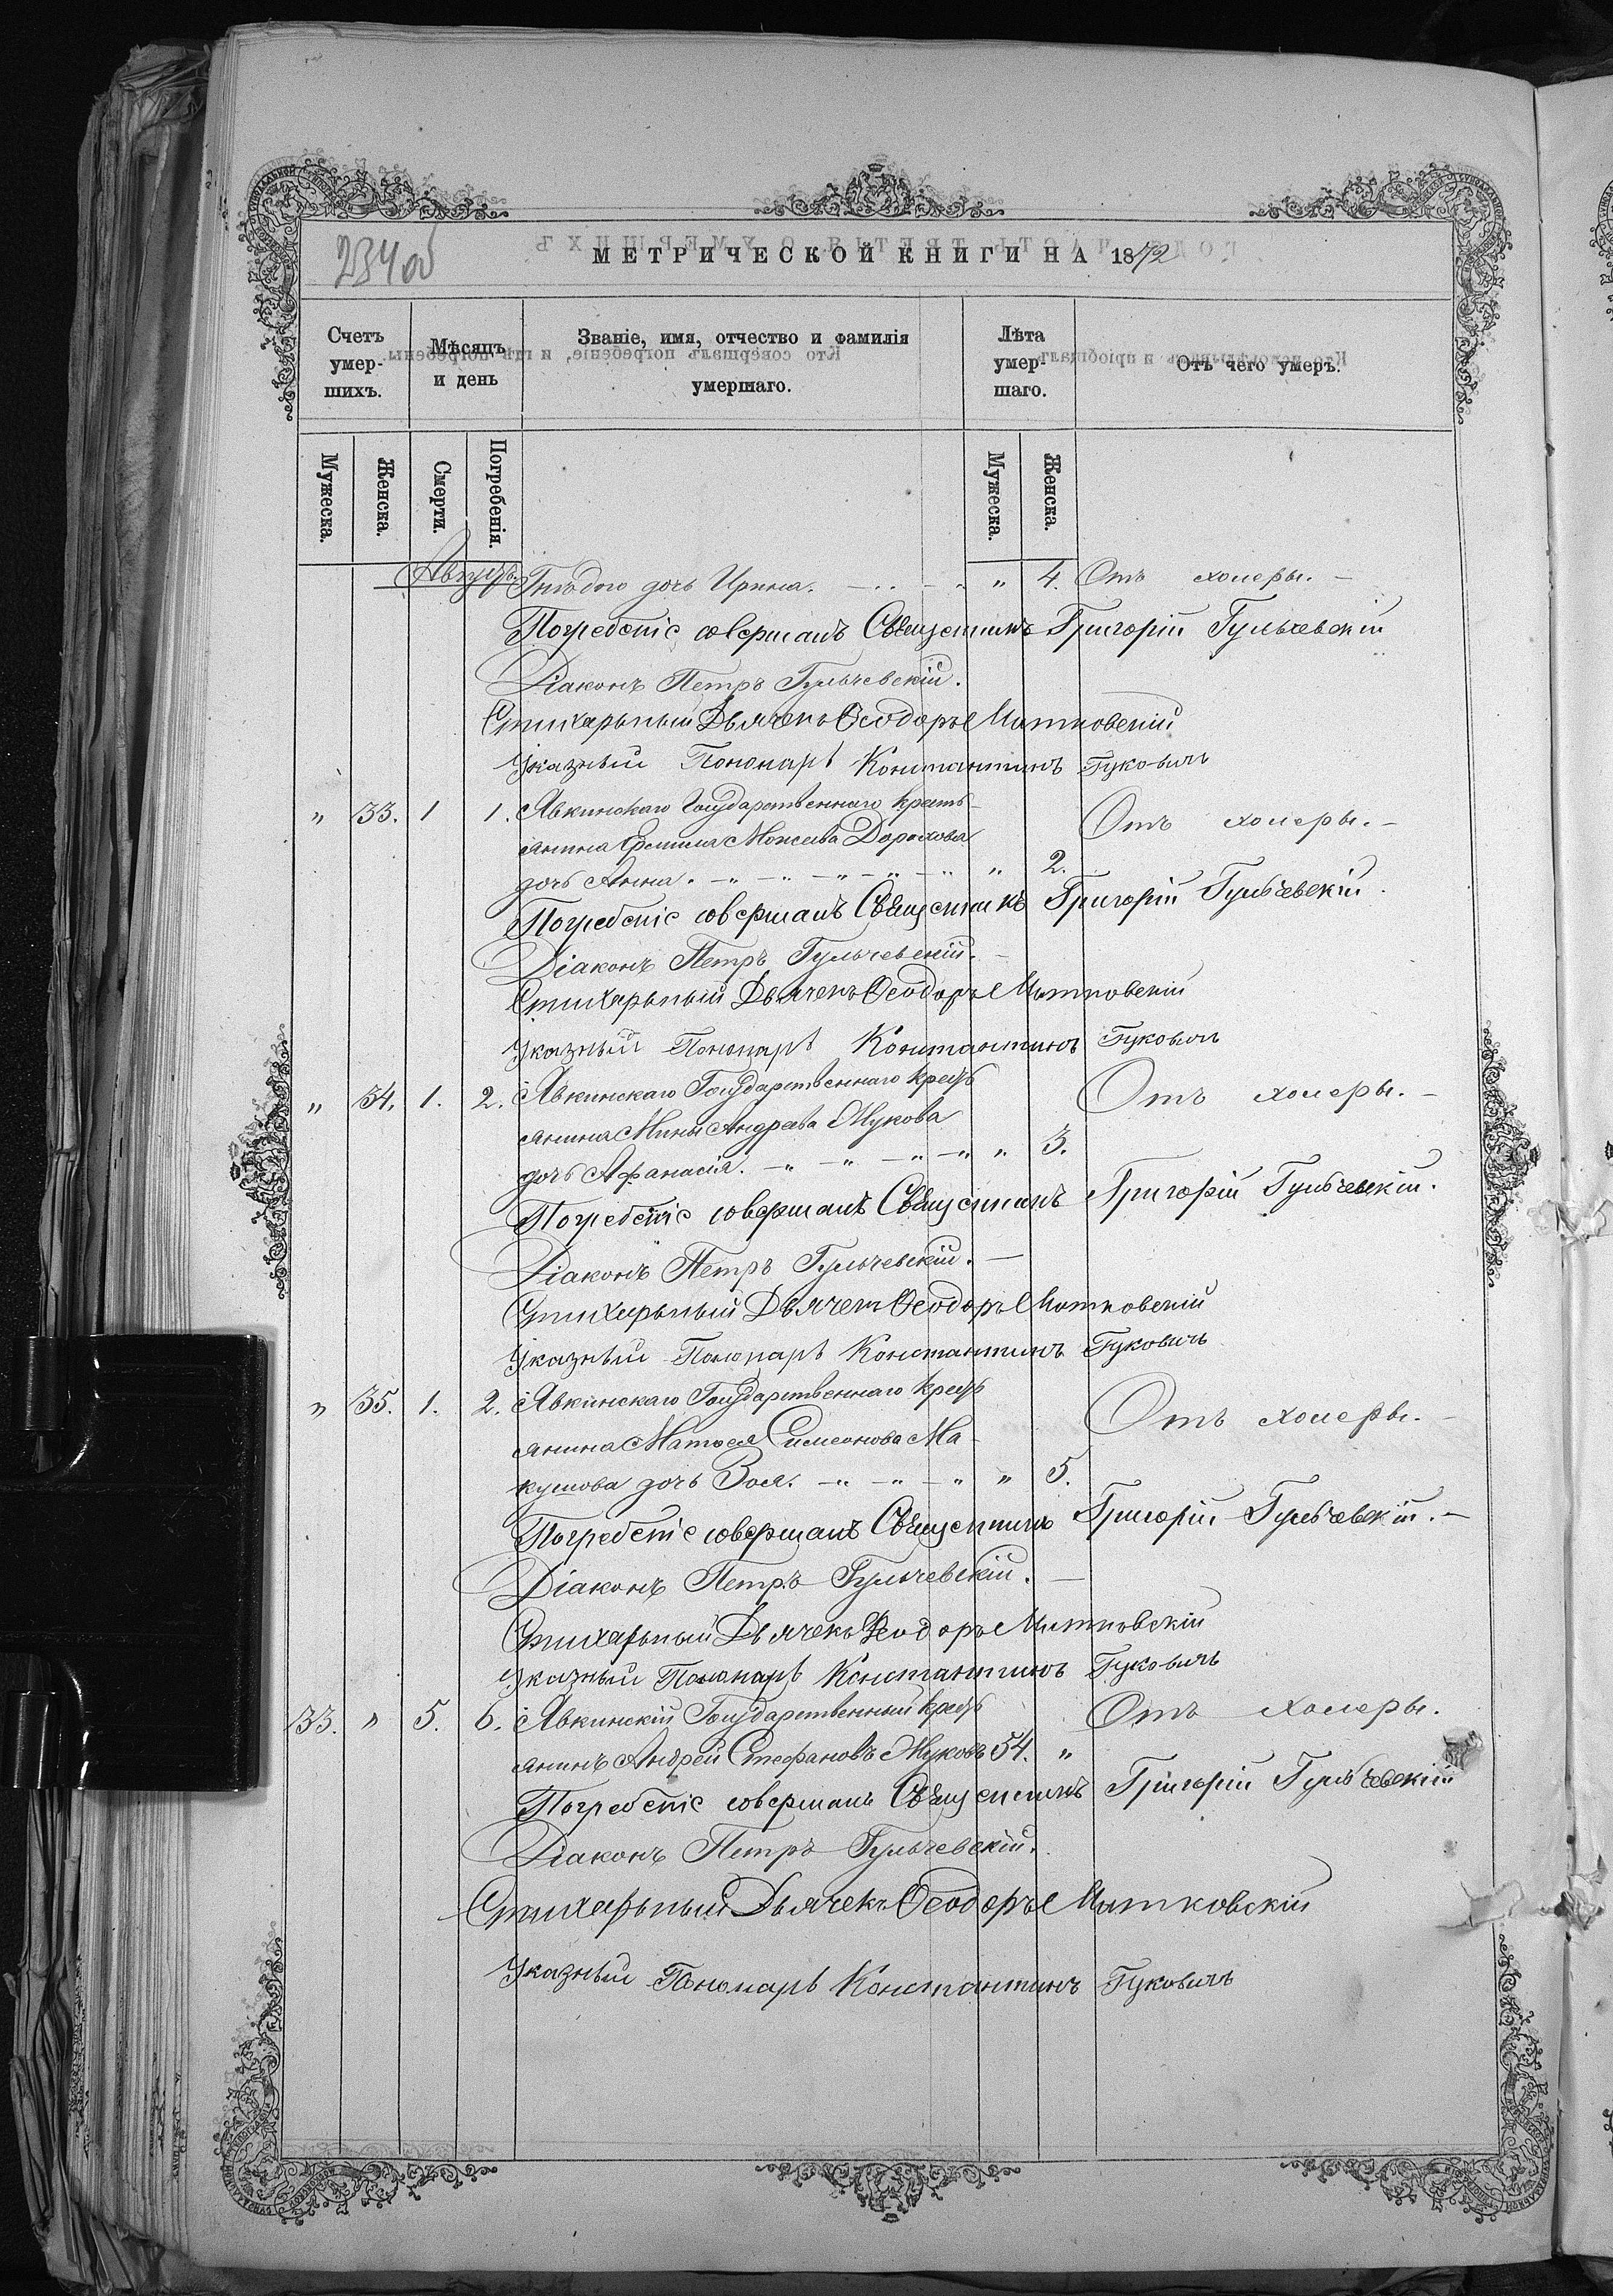 234 об
МЕТРИЧЕСКОЙ КНИГИ НА 1872
Счетъ умер-шихъ.
Мѣсяцъ и день
Званіе, имя, отчество и фамилія умершаго.
Лѣта умер-шаго.
Отъ чего умеръ.
Мужеска.
Женска.
Смерти.
Погребенія.
Мужеска.
Женска.
Августъ. Гнѣдого дочь Ирина. " 4. Отъ холеры.
Погребеніе совершалъ Священникъ Григорій Гульчевскій
Діаконъ Петръ Гульчевскій.
Стихарьный Дьячекъ Ѳеодоръ Митковскій
Указный Пономарь Константинъ Гуковичъ
" 33. 1 1. Явкинскаго Государственнаго крестъ-
янина Ермила Моисеева Дорохова Отъ холеры.
дочь Анна. " 2.
Погребеніе совершалъ Священникъ Григорій Гульчевскій.
Діаконъ Петръ Гульчевскій.
Стихарьный Дьячекъ Ѳеодоръ Митковскій
Указный Пономарь Константинъ Гуковичъ
" 34. 1. 2. Явкинскаго Государственнаго кресть Отъ холеры.
янина Мины Андреева Жукова
дочь Афанасія. " 3.
Погребеніе совершалъ Священникъ Григорій Гульчевскій.
Діаконъ Петръ Гульчевскій.
Стихарьный Дьячекъ Ѳеодоръ Митковскій
Указный Пономарь Константинъ Гуковичъ
" 35. 1. 2. Явкинскаго Государственнаго кресть Отъ холеры.
янина Матѳея Симеонова Ма-
кушова дочь Зоя. " 5.
Погребеніе совершалъ Священникъ Григорій Гульчевскій.
Діаконъ Петръ Гульчевскій.
Стихарьный Дьячекъ Ѳеодоръ Митковскій
Указный Пономарь Константинъ Гуковичъ
33. " 5. 6. Явкинскій Государственный кресть Отъ холеры.
янинъ Андрей Стефановъ Жуковъ 54. "
Погребеніе совершалъ Священникъ Григорій Гульчевскій
Діаконъ Петръ Гульчевскій.
Стихарьный Дьячекъ Ѳеодоръ Митковскій
Указный Пономарь Константинъ Гуковичъ